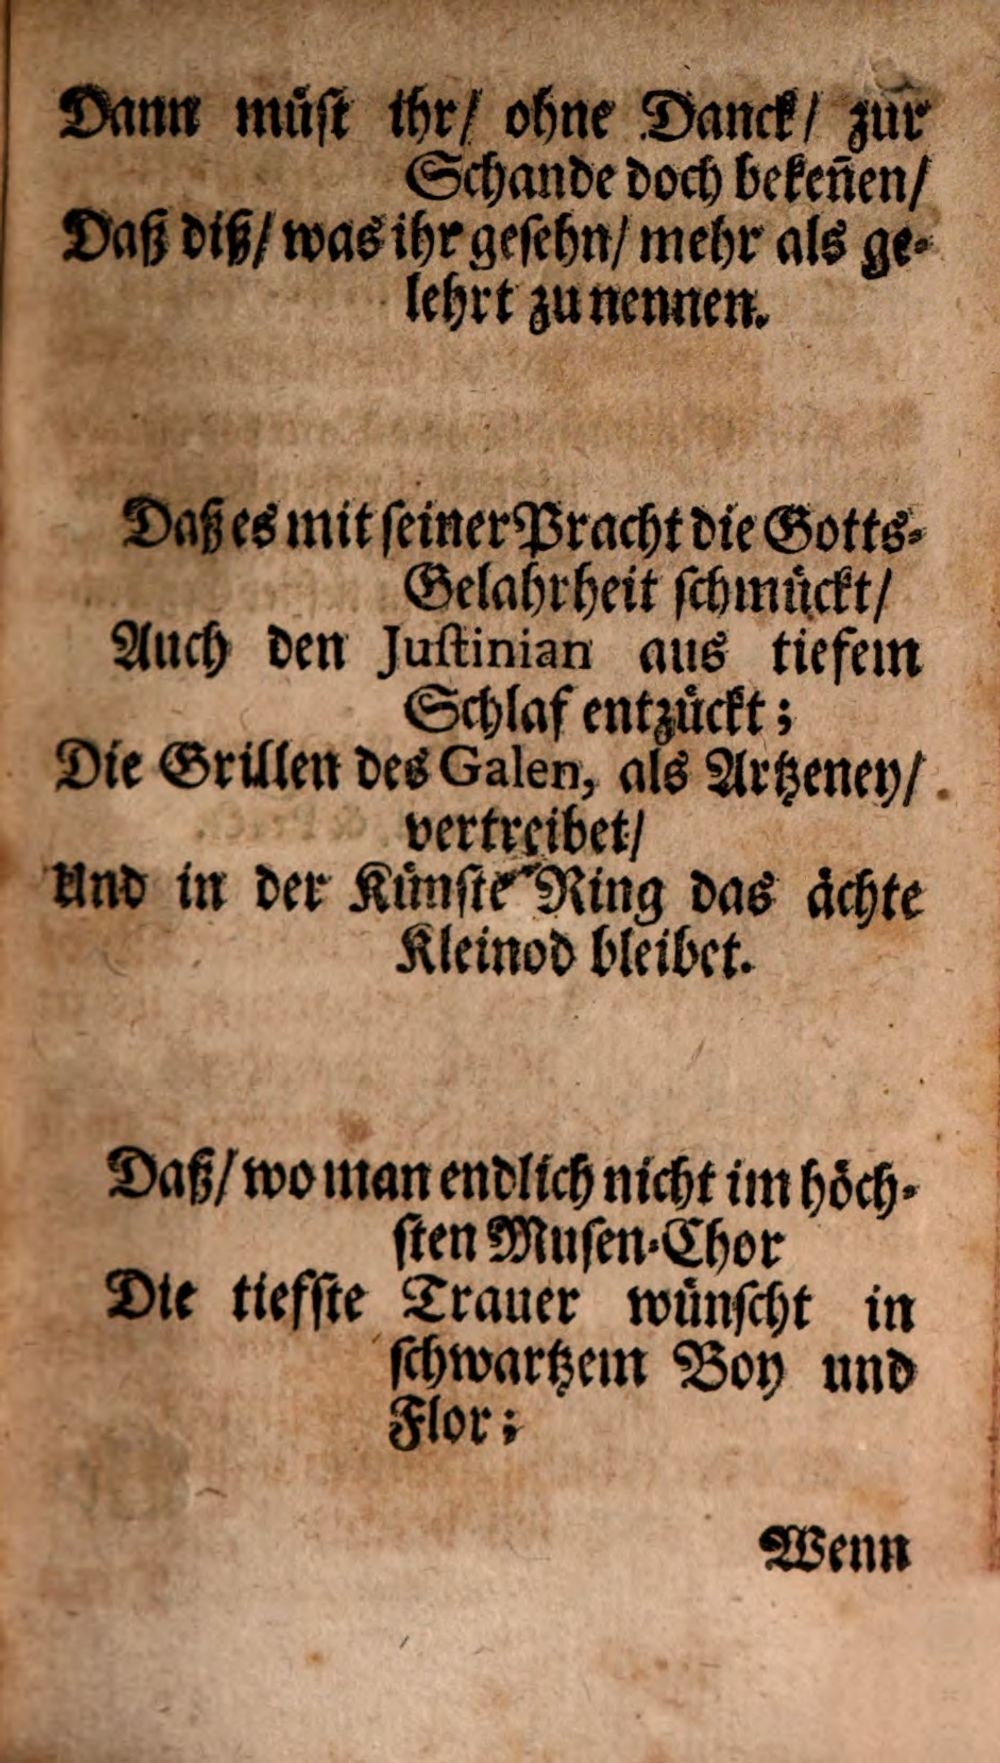 Dann müſt ihr/ ohne Danck/ zur
Schande doch bekeñen/
Daß diß/ was ihr geſehn/ mehr als ge-
lehrt zu nennen.
Daß es mit ſeiner Pracht die Gotts-
Gelahrheit ſchmückt/
Auch den Juſtinian aus tiefem
Schlaf entzückt;
Die Grillen des Galen, als Artzeney/
vertreibet/
Und in der Künſte Ring das ächte
Kleinod bleibet.
Daß/ wo man endlich nicht im höch-
ſten Muſen-Chor
Die tiefſte Trauer wünſcht in
ſchwartzem Boy und
Flor;
Wenn